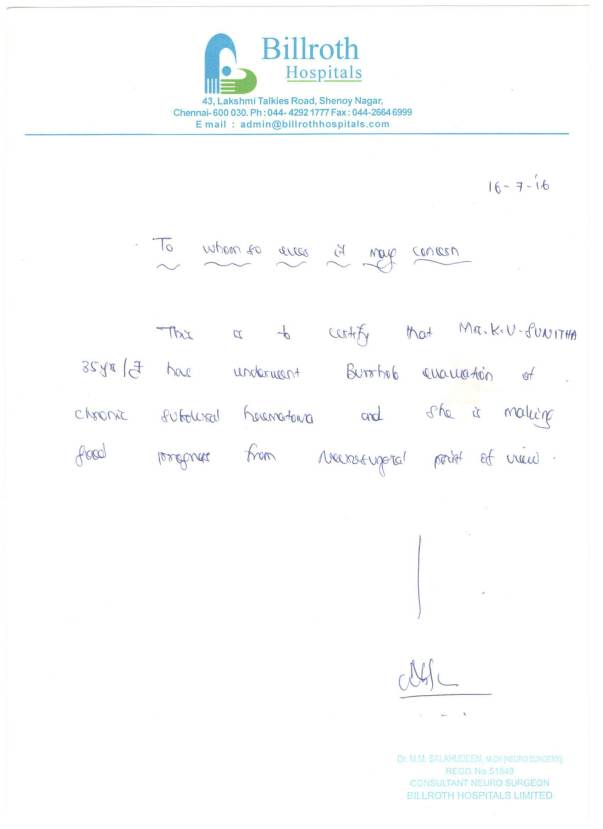 Billroth
Hospitals
43, Lakshmi Talkies Road, Shenoy Nagar,
Chennai- 600 030. Ph : 044- 4292 1777 Fax : 044-2664 6999
E mail : admin@billrothhospitals.com
16-7-'16
To whom so ever it may concern
This is to certify that Mrs. K.V. SUNITHA
35yrs/F has underwent Burrhole evacuation of
chronic subdural haematoma and she is making
good progress from Neurosurgical point of view.
Dr. M.M. SALAHUDEEN, M.CH (NEURO SURGERY)
REGD. No 51849
CONSULTANT NEURO SURGEON
BILLROTH HOSPITALS LIMITED